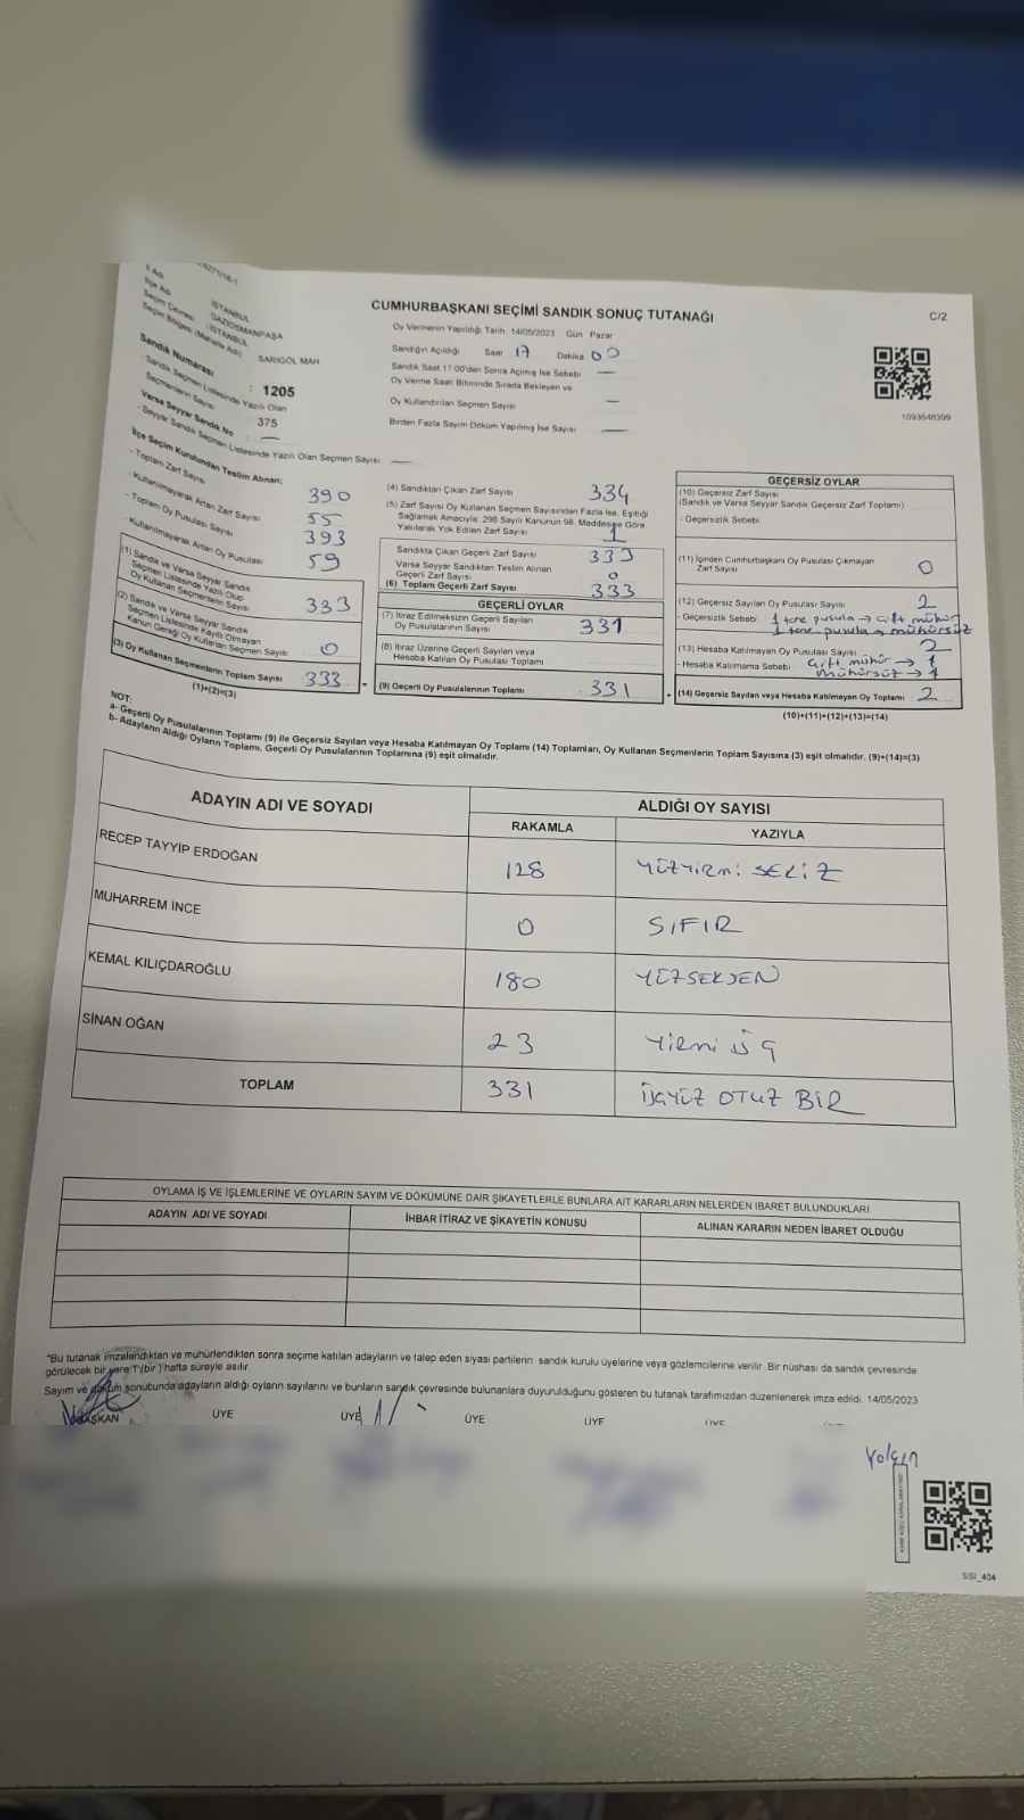 İl Adı
İSTANBUL
İlçe Adı
GAZİOSMANPAŞA
Seçim Çevresi : İSTANBUL
Seçim Bölgesi (Mahalle Adı)
SARIGÖL MAH
Sandık Numarası : 1205
Sandık Seçmen Listesinde Yazılı Olan
Seçmenlerin Sayısı 375
Varsa Seyyar Sandık No —
- Seyyar Sandık Seçmen Listesinde Yazılı Olan Seçmen Sayısı —
CUMHURBAŞKANI SEÇİMİ SANDIK SONUÇ TUTANAĞI
C/2
Oy Vermenin Yapıldığı Tarih 14/05/2023 Gün Pazar
Sandığın Açıldığı Saat 17 Dakika 00
Sandık Saat 17.00'den Sonra Açılmış İse Sebebi —
Oy Verme Saati Bitiminde Sırada Bekleyen ve
Oy Kullandırılan Seçmen Sayısı —
Birden Fazla Sayım Döküm Yapılmış İse Sayısı —
1093648399
İlçe Seçim Kurulundan Teslim Alınan;
- Toplam Zarf Sayısı 390
- Kullanılmayarak Artan Zarf Sayısı 55
- Toplam Oy Pusulası Sayısı 393
- Kullanılmayarak Artan Oy Pusulası 59
(1) Sandık ve Varsa Seyyar Sandık
Seçmen Listesinde Yazılı Olup
Oy Kullanan Seçmenlerin Sayısı 333
(2) Sandık ve Varsa Seyyar Sandık
Seçmen Listesinde Kayıtlı Olmayan
Kanun Gereği Oy Kullanan Seçmen Sayısı 0
(3) Oy Kullanan Seçmenlerin Toplam Sayısı 333
(1)+(2)=(3)
(4) Sandıktan Çıkan Zarf Sayısı 334
(5) Zarf Sayısı Oy Kullanan Seçmen Sayısından Fazla İse, Eşitliği
Sağlamak Amacıyla 298 Sayılı Kanunun 98. Maddesine Göre
Yakılarak Yok Edilen Zarf Sayısı 1
Sandıkta Çıkan Geçerli Zarf Sayısı 333
Varsa Seyyar Sandıktan Teslim Alınan
Geçerli Zarf Sayısı 0
(6) Toplam Geçerli Zarf Sayısı 333
GEÇERLİ OYLAR
(7) İtiraz Edilmeksizin Geçerli Sayılan
Oy Pusulalarının Sayısı 331
(8) İtiraz Üzerine Geçerli Sayılan veya
Hesaba Katılan Oy Pusulası Toplamı
(9) Geçerli Oy Pusulalarının Toplamı 331
GEÇERSİZ OYLAR
(10) Geçersiz Zarf Sayısı
(Sandık ve Varsa Seyyar Sandık Geçersiz Zarf Toplamı)
- Geçersizlik Sebebi
(11) İçinden Cumhurbaşkanı Oy Pusulası Çıkmayan
Zarf Sayısı 0
(12) Geçersiz Sayılan Oy Pusulası Sayısı 2
- Geçersizlik Sebebi 1 tane pusula → çift mühür
1 tane pusula → mühürsüz
(13) Hesaba Katılmayan Oy Pusulası Sayısı 2
- Hesaba Katılmama Sebebi çift mühür → 1
mühürsüz → 1
(14) Geçersiz Sayılan veya Hesaba Katılmayan Oy Toplamı 2
(10)+(11)+(12)+(13)=(14)
NOT:
a- Geçerli Oy Pusulalarının Toplamı (9) ile Geçersiz Sayılan veya Hesaba Katılmayan Oy Toplamı (14) Toplamları, Oy Kullanan Seçmenlerin Toplam Sayısına (3) eşit olmalıdır. (9)+(14)=(3)
b- Adayların Aldığı Oyların Toplamı, Geçerli Oy Pusulalarının Toplamına (9) eşit olmalıdır.
ADAYIN ADI VE SOYADI
ALDIĞI OY SAYISI
RAKAMLA YAZIYLA
RECEP TAYYİP ERDOĞAN 128 YÜZYİRMİ SEKİZ
MUHARREM İNCE 0 SIFIR
KEMAL KILIÇDAROĞLU 180 YÜZSEKSEN
SİNAN OĞAN 23 YİRMİ ÜÇ
TOPLAM 331 ÜÇYÜZ OTUZ BİR
OYLAMA İŞ VE İŞLEMLERİNE VE OYLARIN SAYIM VE DÖKÜMÜNE DAİR ŞİKAYETLERLE BUNLARA AİT KARARLARIN NELERDEN İBARET BULUNDUKLARI
ADAYIN ADI VE SOYADI İHBAR İTİRAZ VE ŞİKAYETİN KONUSU ALINAN KARARIN NEDEN İBARET OLDUĞU
*Bu tutanak imzalandıktan ve mühürlendikten sonra seçime katılan adayların ve talep eden siyasi partilerin sandık kurulu üyelerine veya gözlemcilerine verilir. Bir nüshası da sandık çevresinde
görülecek bir yere 1 (bir) hafta süreyle asılır.
Sayım ve döküm sonubunda adayların aldığı oyların sayılarını ve bunların sandık çevresinde bulunanlara duyurulduğunu gösteren bu tutanak tarafımızdan düzenlenerek imza edildi. 14/05/2023
BAŞKAN ÜYE ÜYE ÜYE ÜYE ÜYE
Volkan
SSI_404